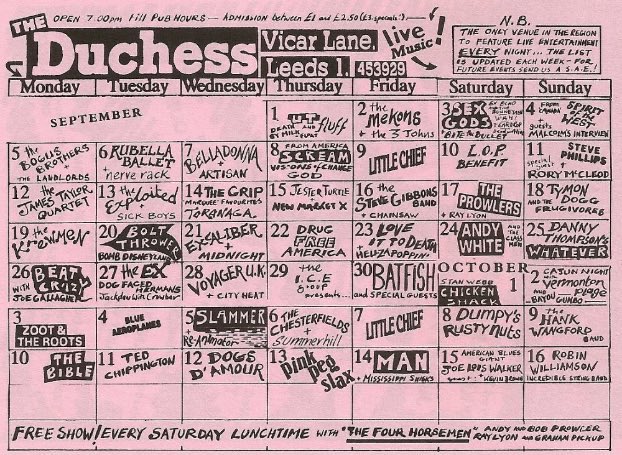 THE
Duchess
OPEN 7.00pm till PUB HOURS — ADMISSION between £1 and £2.50 (£3. specials!)
Vicar Lane,
Leeds 1. 453929
live
Music!
N.B.
THE ONLY VENUE IN THE REGION
TO FEATURE LIVE ENTERTAINMENT
EVERY NIGHT... THE LIST
IS UPDATED EACH WEEK - FOR
FUTURE EVENTS SEND US A S.A.E.!
Monday Tuesday Wednesday Thursday Friday Saturday Sunday
SEPTEMBER
1 UT
DEATH BY MILK FLOAT
AND fluff
2 the Mekons
+ the 3 Johns
3 SEX GODS
BITE THE BULLET
4 FROM CANADA SPIRIT OF THE WEST
+ guests
MALCOLM'S INTERVIEW
5 the BOGUS BROTHERS
+ THE LANDLORDS
6 RUBELLA BALLET
+ nerve rack
7 BELLADONNA
+ ARTISAN
8 FROM AMERICA
SCREAM
VISIONS OF CHANGE
GOD
9 LITTLE CHIEF
10 L.O.P.
BENEFIT
11 STEVE PHILLIPS
special guest
RORY McLEOD
12 the JAMES TAYLOR QUARTET
13 the Exploited
+ SICK BOYS
14 THE GRIP
MARQUEE FAVOURITES
TORANAGA
15 JESTER TURTLE
+ NEW MARKET X
16 the STEVE GIBBONS BAND
+ CHAINSAW
17 THE PROWLERS
+ RAY LYON
18 TYMON
AND THE DOGG
FRUGIVORES
19 the Krewmen
20 BOLT THROWER
BOMB DISNEYLAND
21 EXSALIBER
+ MIDNIGHT
22 DRUG FREE AMERICA
23 LOVE IT TO DEATH
+ HEUZAPOPPIN'
24 ANDY WHITE
AND THE CLASS MEN
25 DANNY THOMPSON'S WHATEVER
26 BEAT CRAZY
WITH JOE GALLAGHER
27 the EX
DOG FACED HERMANS
Jackdaw With Crowbar
28 VOYAGER U.K.
+ CITY HEAT
29 the I.C.E. group presents...
30 BATFISH
AND SPECIAL GUESTS
OCTOBER
1 STAN WEBB
CHICKEN SHACK
2 CAJUN NIGHT
vermonton page
AND BAYOU GUMBO
3 ZOOT & THE ROOTS
4 BLUE AEROPLANES
5 SLAMMER
+ Re-Animator
6 THE CHESTERFIELDS
+ Summerhill
7 LITTLE CHIEF
8 DUMPY'S RUSTY NUTS
9 THE HANK WANGFORD BAND
10 THE BIBLE
11 TED CHIPPINGTON
12 DOGS D'AMOUR
13 pink peg slax
14 MAN
+ MISSISSIPPI SHAKS
15 AMERICAN BLUES GIANT
JOE LOUIS WALKER
guest KEVIN BROWN
16 ROBIN WILLIAMSON
INCREDIBLE STRING BAND
FREE SHOW! EVERY SATURDAY LUNCHTIME WITH "THE FOUR HORSEMEN" ANDY AND BOB PROWLER
RAY LYON AND GRAHAM PICKUP